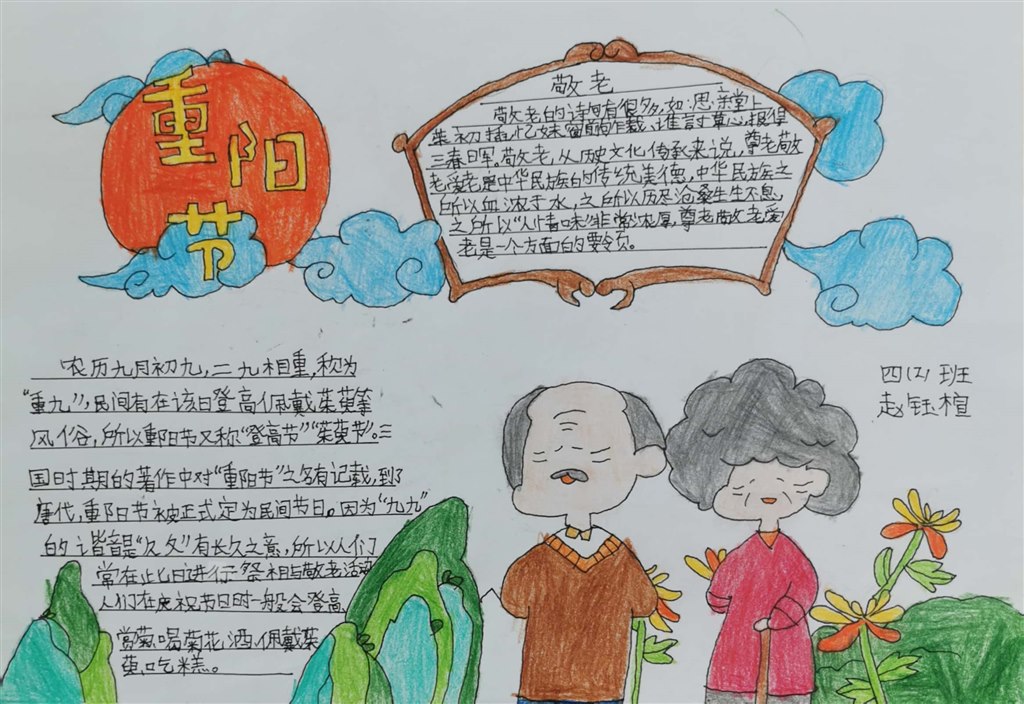 重阳节
敬老
敬老的诗句有很多,如:思亲堂上
茱初插,忆妹窗前作裁、谁言寸草心,报得
三春晖。敬老,从历史文化传承来说,尊老敬
老爱老是中华民族的传统美德,中华民族之
所以血浓于水,之所以历尽沧桑生生不息,
之所以“人情味”非常浓厚,尊老敬老爱
老是一个方面的要令员。
农历九月初九,二九相重,称为
“重九”,民间有在该日登高佩戴茱萸等
风俗,所以重阳节又称“登高节”“茱萸节”。三
国时期的著作中对“重阳节”之名有记载,到了
唐代,重阳节被正式定为民间节日。因为“九九”
的谐音是“久久”有长久之意,所以人们
常在此日进行祭祖与敬老活动
人们在庆祝节日时一般会登高、
赏菊、喝菊花酒、佩戴茱
萸、吃糕。
四(2)班
赵钰楦